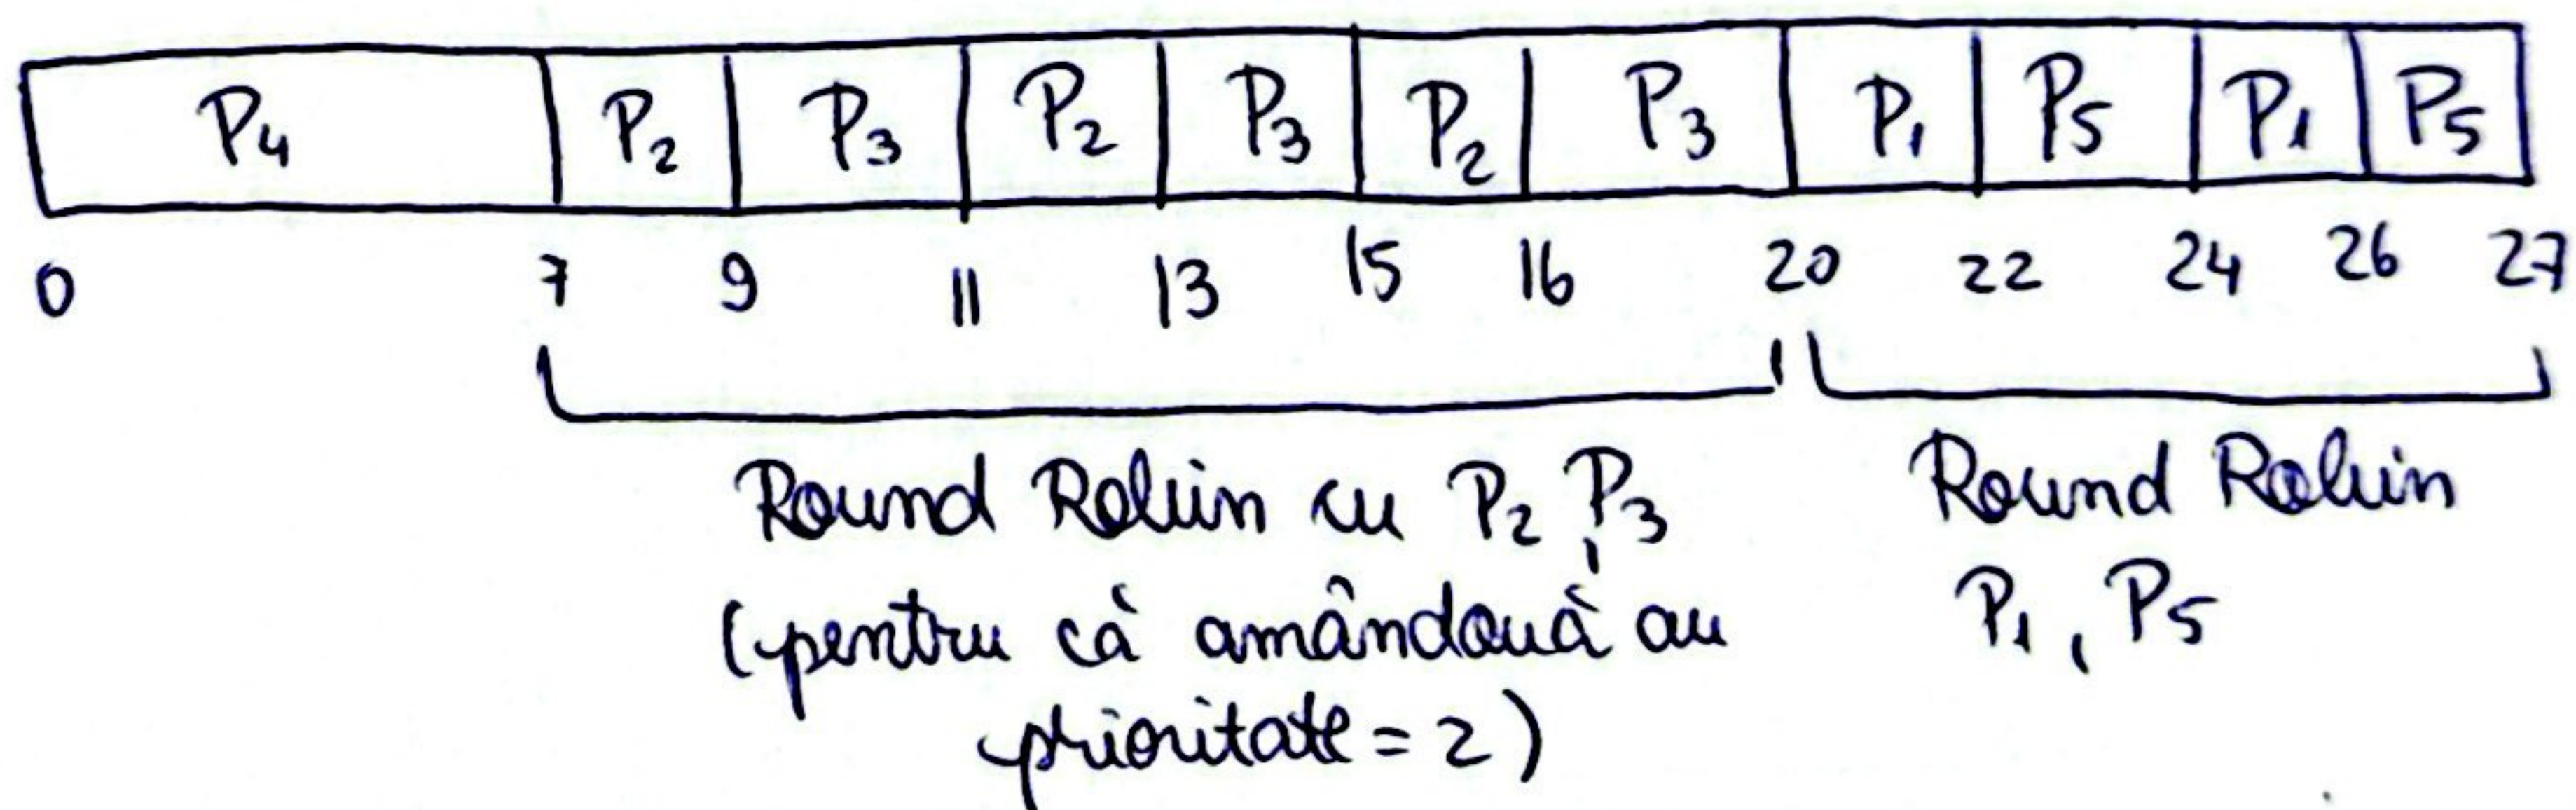 P4 P2 P3 P2 P3 P2 P3 P1 P5 P1 P5
0 7 9 11 13 15 16 20 22 24 26 27
Round Robin cu P2, P3
(pentru că amândouă au
prioritate = 2)
Round Robin
P1, P5